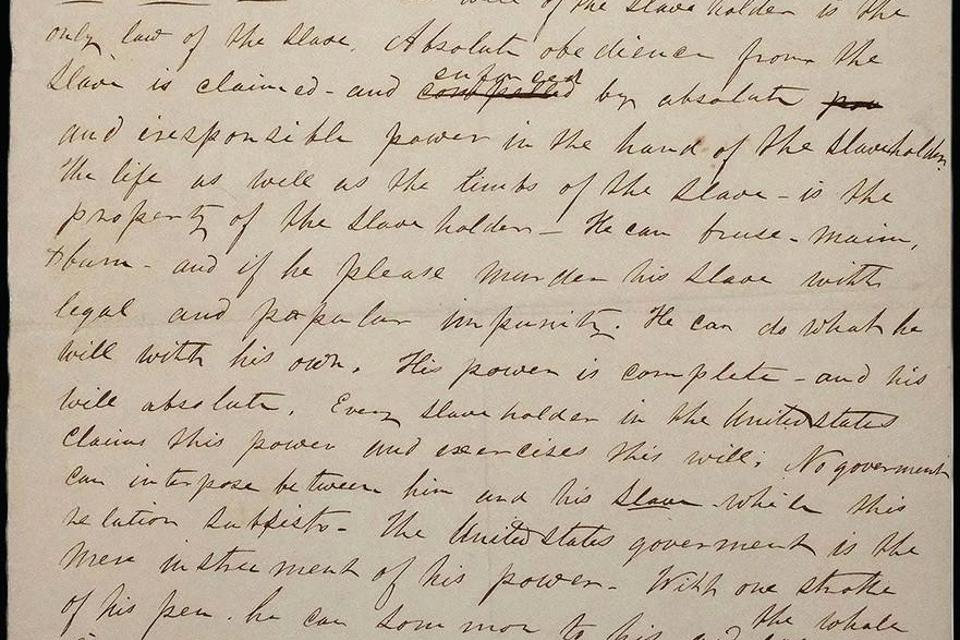 will of the slave holder is the
only law of the slave. Absolute obedience from the
slave is claimed - and compelled enforced by absolute pow
and iresponsible power in the hand of the slaveholder.
The life as well as the limbs of the slave - is the
property of the slave holder - He can bruse - maim,
& burn - and if he please murder his slave with
legal and popular impunity. He can do what he
will with his own. His power is complete - and his
will absolute. Every slave holder in the United states
claims this power and exercises this will. No goverment
can interpose between him and his slave while this
relation subsists - The United states goverment is the
mere instrument of his power - With one stroke
of his pen. he can sommon to his the whole